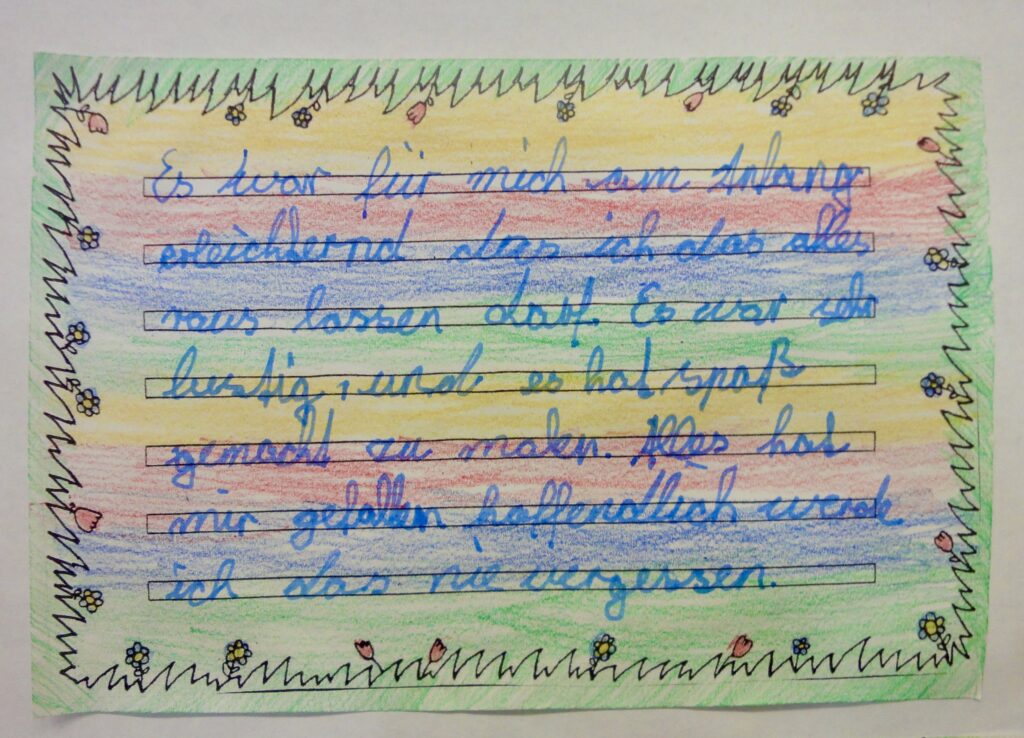 Es war für mich am Anfang
erleichternd das ich das alles
raus lassen darf. Es war sehr
lustig, und es hat spaß
gemacht zu malen. Alles hat
mir gefallen hoffendtlich werde
ich das nie vergessen.